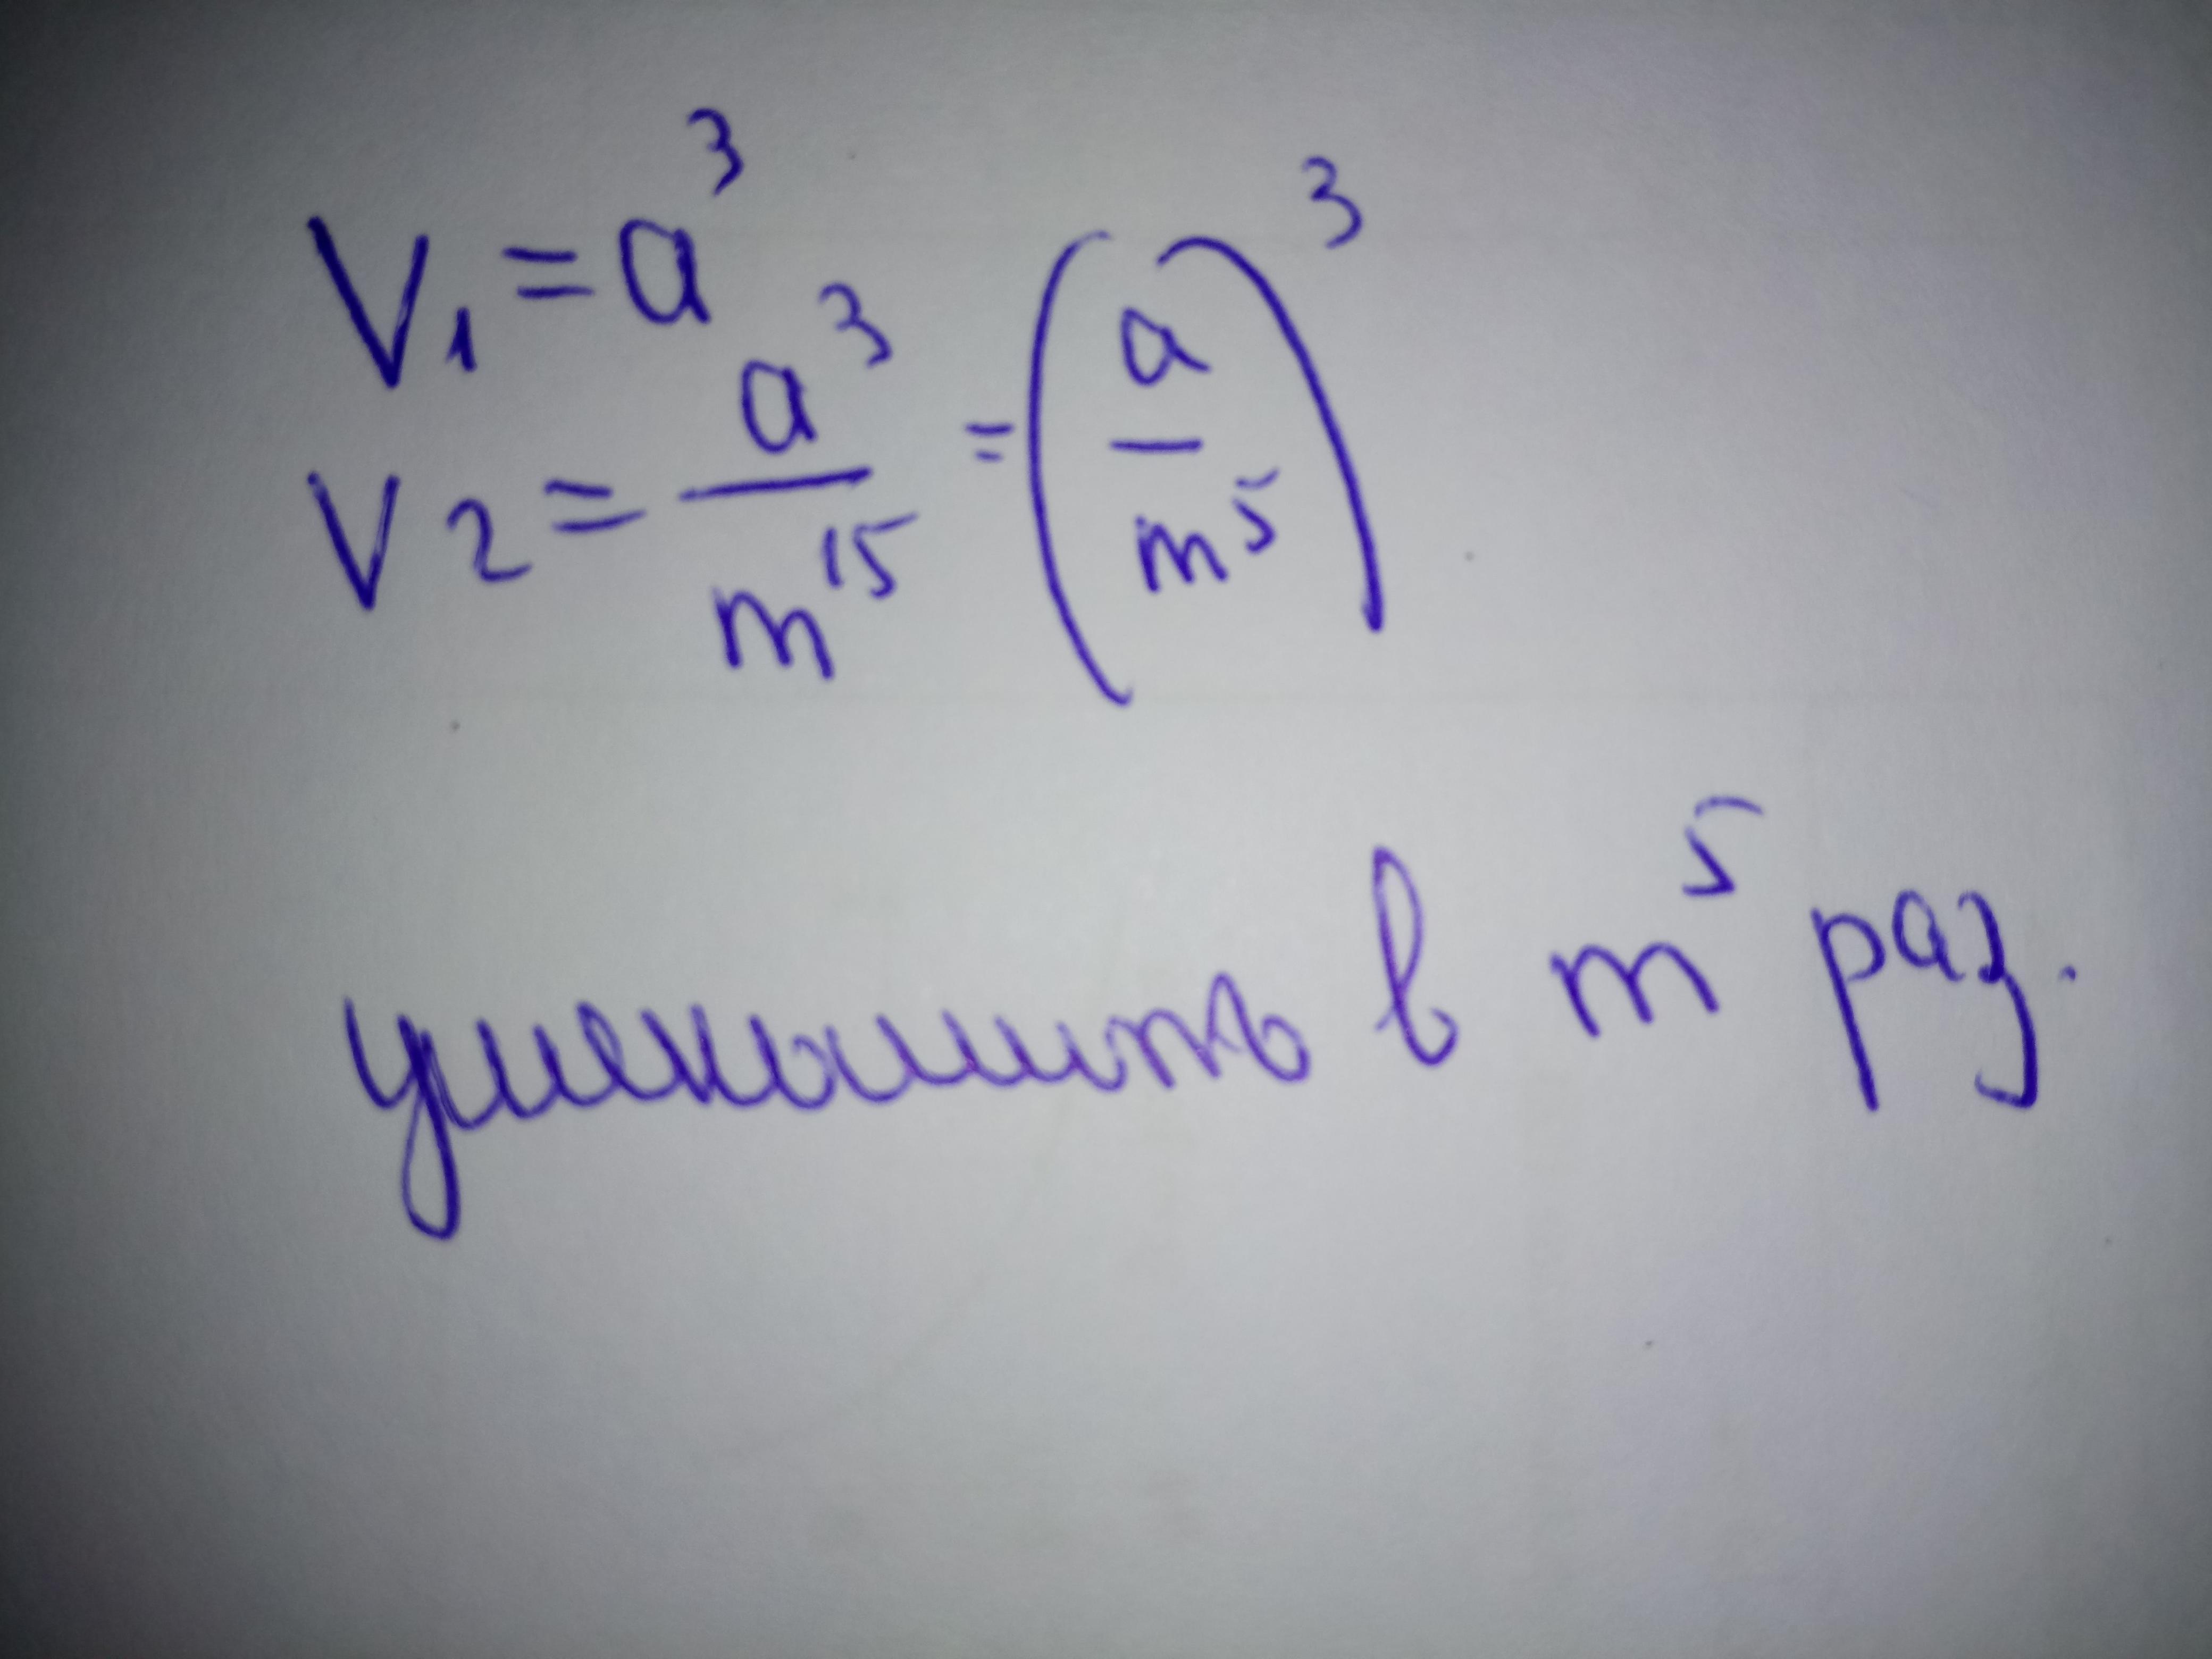 V₁ = a³
V2 = a³/m¹⁵ = (a/m⁵)³
уменьшить в m⁵ раз.